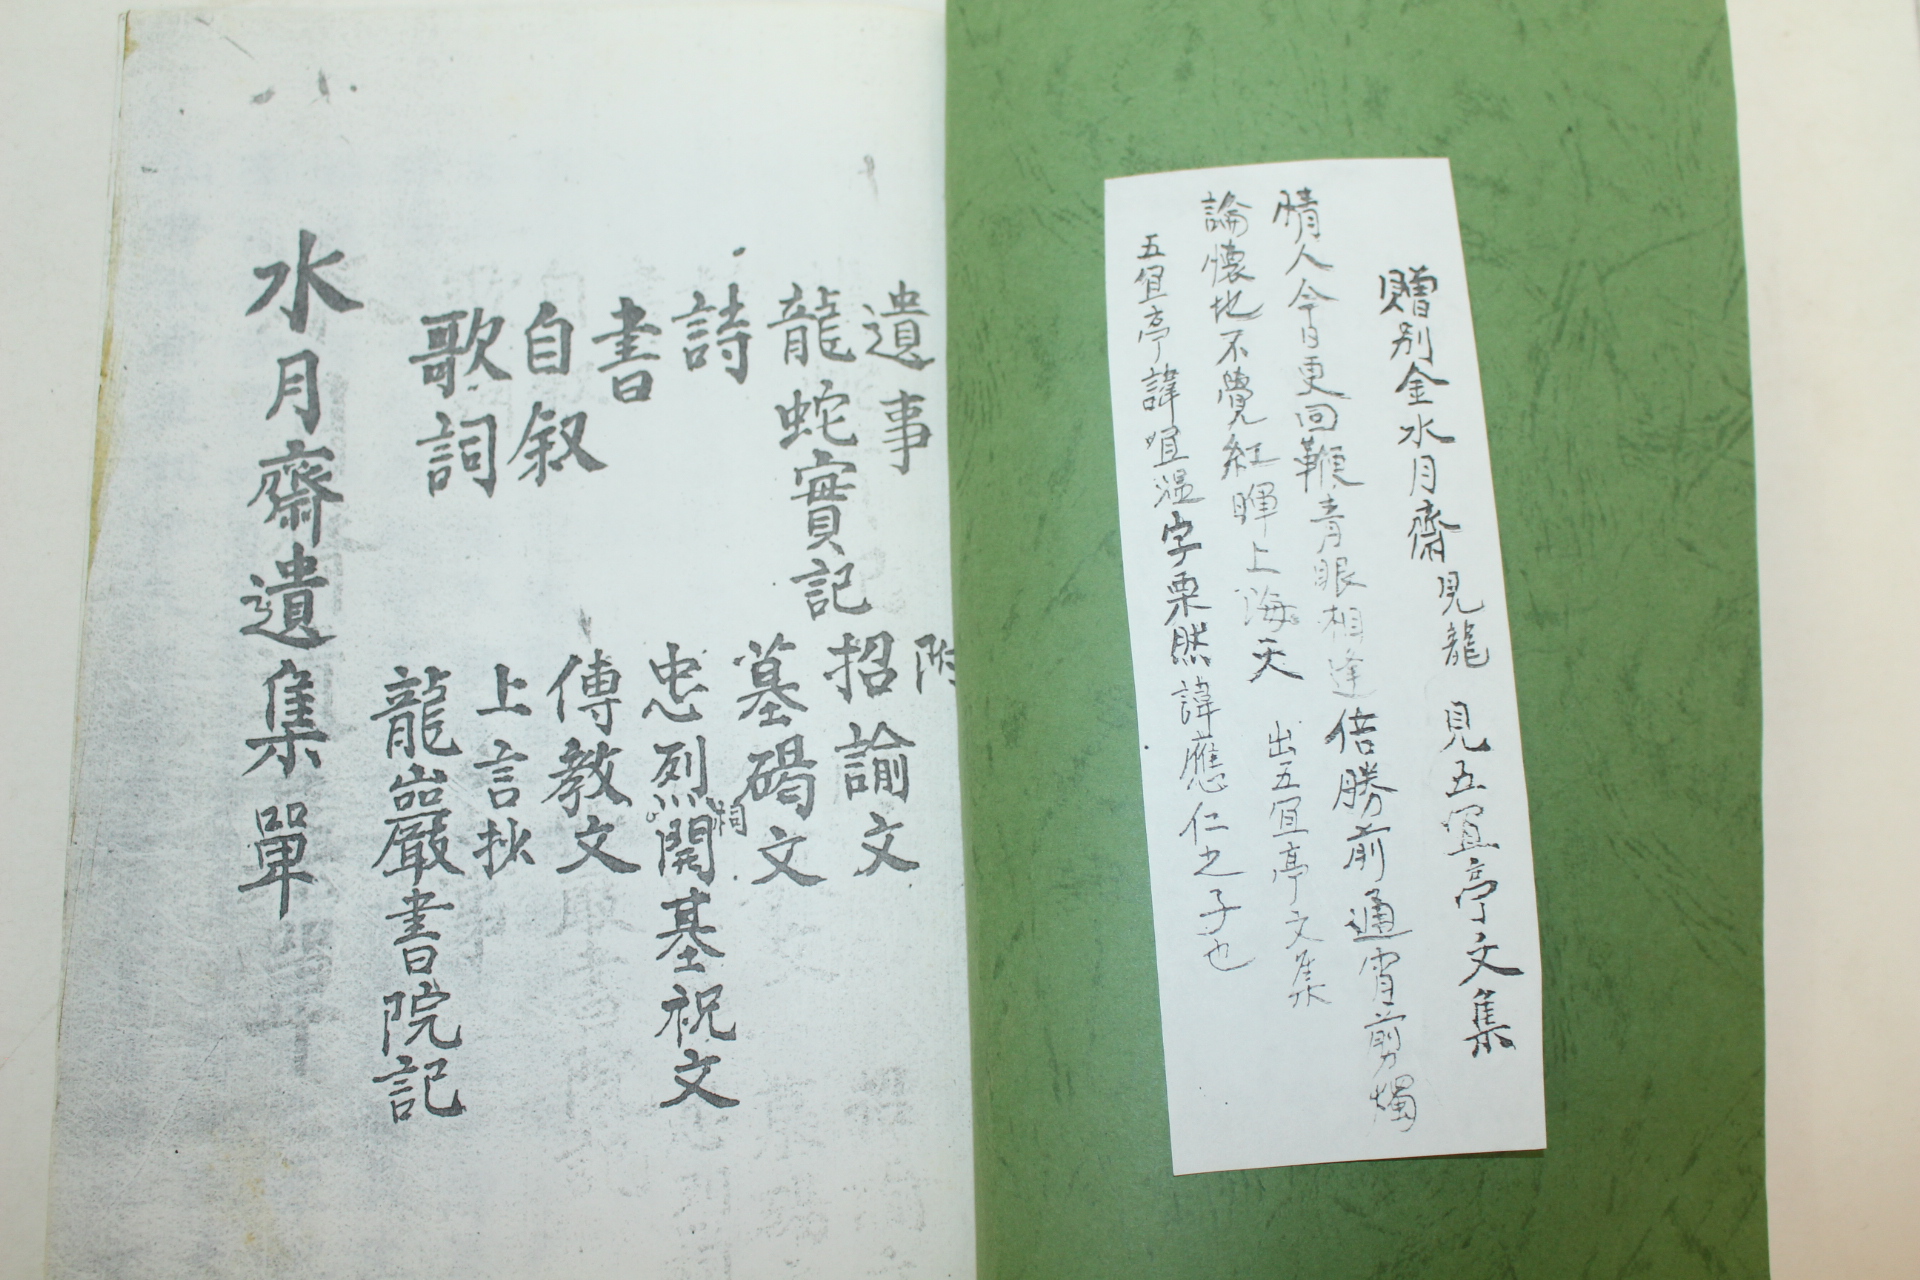 贈別金水月齋見龍 見五冝亭文集
情人今日更回鞭青眼相逢倍勝前通宵剪燭
論懷地不覺紅暉上海天 出五冝亭文集
五冝亭諱溫字栗然諱應仁之子也
遺事
龍蛇實記
詩
書
自叙
歌詞
附
招諭文
墓碣文
忠烈祠開基祝文
傳教文
上言抄
龍巖書院記
水月齋遺集單